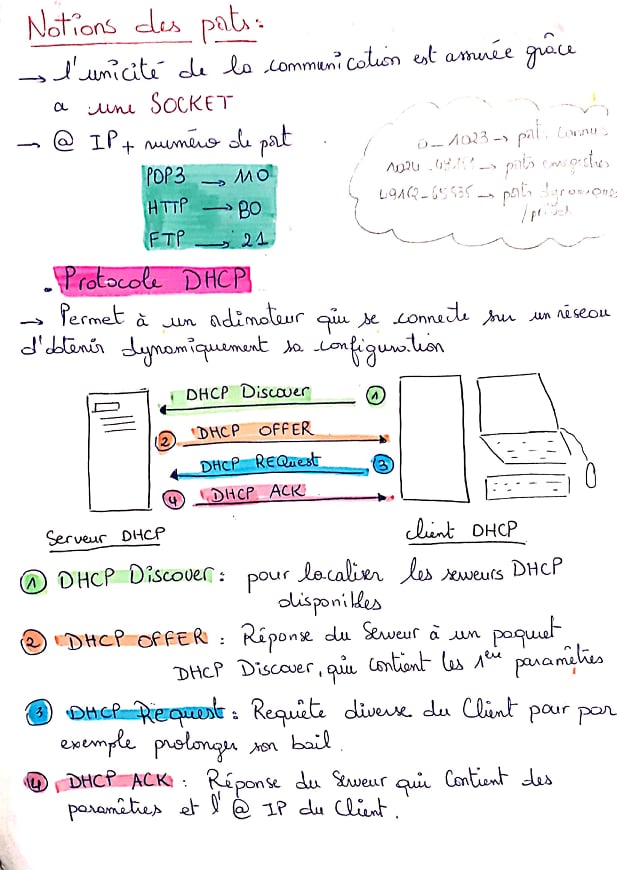 Notions des ports :
→ l'unicité de la communication est assurée grâce
a une SOCKET
→ @ IP + numéro de port
0_1023 → port connus
1024 → ports enregistrés
49152_65535 → ports dynamiques
/privés
POP3 → 110
HTTP → 80
FTP → 21
. Protocole DHCP
→ Permet à un ordinateur qui se connecte sur un réseau
d'obtenir dynamiquement sa configuration
DHCP Discover 1
2 DHCP OFFER
DHCP REQuest 3
4 DHCP ACK
Serveur DHCP
client DHCP
1 DHCP Discover : pour localiser les serveurs DHCP
disponibles
2 DHCP OFFER : Réponse du Serveur à un paquet
DHCP Discover, qui contient les 1ers paramêtres
3 DHCP Request : Requête diverse du Client pour par
exemple prolonger son bail.
4 DHCP ACK : Réponse du Serveur qui Contient des
paramêtres et l'@ IP du Client.